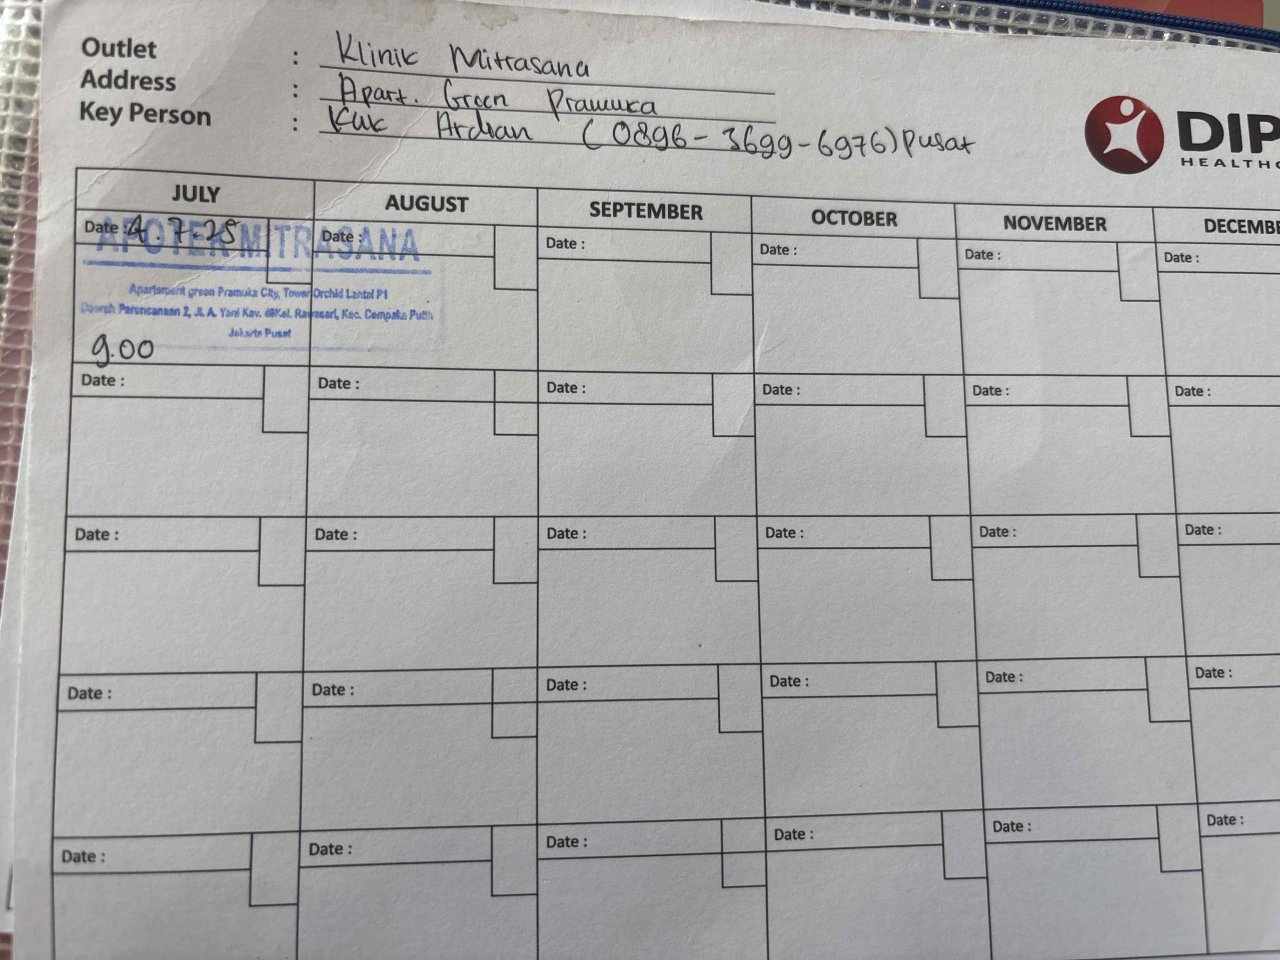 Outlet : Klinik Mitrasana
Address : Apart. Green Pramuka
Key Person : Kak Ardian (0896-3699-6976) Pusat
DIP
HEALTHC
JULY AUGUST SEPTEMBER OCTOBER NOVEMBER DECEMBE
Date : 4.7.25 Date : Date : Date : Date : Date :
APOTEK MITRASANA
Apartement green Pramuka City, Tower Orchid Lantai P1
Daerah Perencanaan 2, Jl. A. Yani Kav. 49 Kel. Rawasari, Kec. Cempaka Putih
Jakarta Pusat
9.00
Date : Date : Date : Date : Date : Date :
Date : Date : Date : Date : Date : Date :
Date : Date : Date : Date : Date : Date :
Date : Date : Date : Date : Date : Date :